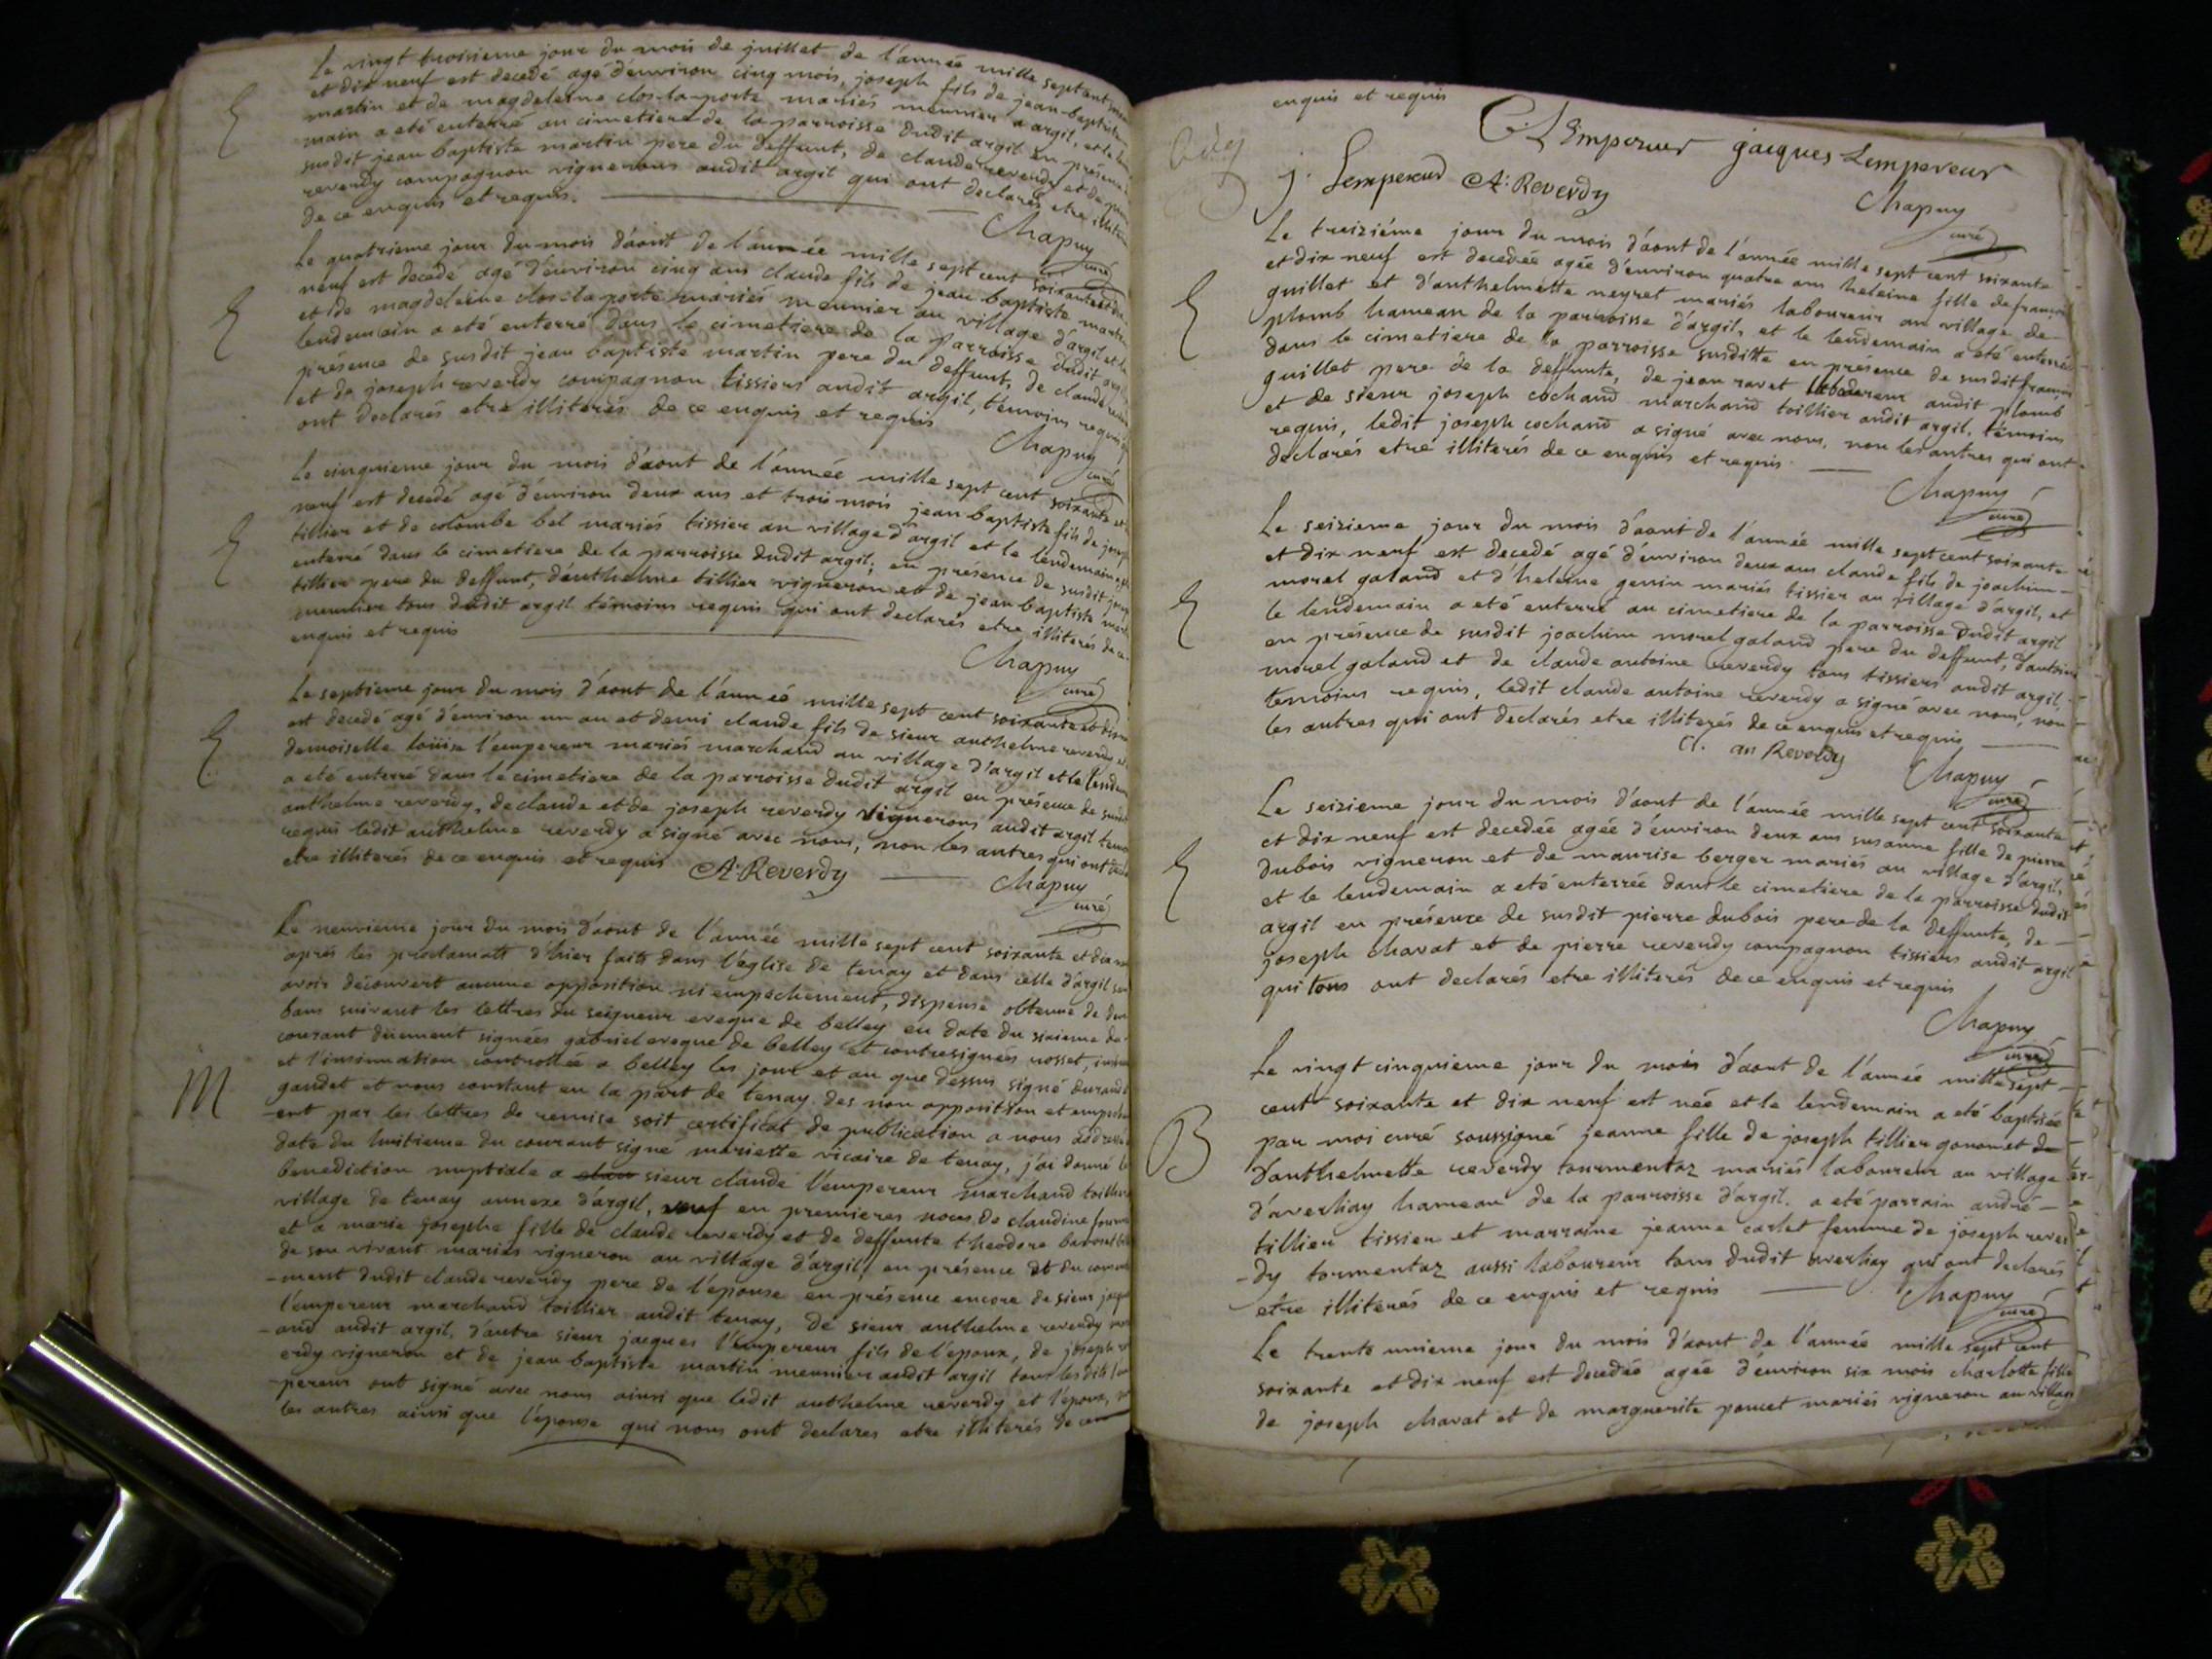 Le vingt troisieme jour du mois de juillet de l'année mille sept cent
et dix neuf est decedé agé d'environ cinq mois, joseph fils de jean-baptiste
martin et de magdeleine clos-la-porte mariés meunier a argil, et le
main a eté enterré au cimetiere de la parroisse dudit argil en présence
susdit jean baptiste martin pere du deffunt, de claude reverdy et de
reverdy compagnon vignerons audit argil qui ont declarés etre
de ce enquis et requis.
Chapuy
curé
E
Le quatrieme jour du mois d'aout de l'année mille sept cent soixante et dix
neuf est decedé agé d'environ cinq ans claude fils de jean baptiste martin
et de magdeleine clos-la-porte mariés meunier au village d'argil et le
lendemain a eté enterré dans le cimetiere de la parroisse dudit argil
présence de susdit jean baptiste martin pere du deffunt, de claude
et de joseph reverdy compagnon tissiers audit argil, témoins requis
ont declarés etre illiterés de ce enquis et requis
Chapuy
curé
E
Le cinquieme jour du mois d'aout de l'année mille sept cent soixante et
neuf est decedé agé d'environ deux ans et trois mois jean baptiste fils de
tillier et de colombe bel mariés tissier au village d'argil et le lendemain
enterré dans le cimetiere de la parroisse dudit argil; en présence de susdit
tillier pere du deffunt, d'anthelme tillier vigneron et de jean baptiste
meunier tous dudit argil témoins requis qui ont declarés etre illiterés de ce
enquis et requis
Chapuy
curé
E
Le septieme jour du mois d'aout de l'année mille sept cent soixante et
est decedé agé d'environ un an et demi claude fils de sieur anthelme reverdy
demoiselle loüise l'empereur mariés marchand au village d'argil et le
a eté enterré dans le cimetiere de la parroisse dudit argil en présence de
anthelme reverdy, de claude et de joseph reverdy vignerons audit argil
requis ledit anthelme reverdy a signé avec nous, non les autres qui ont
etre illiterés de ce enquis et requis A. Reverdy
Chapuy
curé
E
Le neuvieme jour du mois d'aout de l'année mille sept cent soixante et dix
après les proclamats d'hier faits dans l'eglise de tenay et dans celle d'argil
avoir découvert aucune opposition ni empechement, dispense obtenue de
bans suivant les lettres du seigneur eveque de belley en date du sixieme du
courant dûement signées gabriel eveque de belley et contresignées rosset,
et l'insinuation controllée a belley les jour et an que dessus signé
gaudet et nous constant en la part de tenay des non opposition et
ent par les lettres de remise soit certificat de publication a nous
date du huitieme du courant signé mariette vicaire de tenay, j'ai donné
benediction nuptiale a sieur claude l'empereur marchand
village de tenay annexe d'argil, veuf en premieres noces de claudine
et a marie josephe fille de claude reverdy et de deffunte theodore
de son vivant mariés vigneron au village d'argil, en présence et du
-ment dudit claude reverdy pere de l'epouse en présence encore de sieur
l'empereur marchand toillier audit tenay, de sieur anthelme reverdy
-and audit argil, d'autre sieur jacques l'empereur fils de l'epoux, de joseph
erdy vigneron et de jean baptiste martin meunier audit argil tous les dits
-pereur ont signé avec nous ainsi que ledit anthelme reverdy et l'epoux,
les autres ainsi que l'épouse qui nous ont declarés etre illiterés de ce
M
enquis et requis
C. LEmpereur jacques Lempereur
j. Lempereur A. Reverdy
Chapuy
curé
Le treiziéme jour du mois d'aout de l'année mille sept cent soixante
et dix neuf est decedée agée d'environ quatre ans heleine fille de
guillet et d'anthelmette neyret mariés laboureur au village de
plomb hameau de la parroisse d'argil, et le lendemain a eté enterrée
dans le cimetiere de la parroisse susditte en présence de susdit
guillet pere de la deffunte, de jean ravet laboureur audit plomb
et de sieur joseph cochand marchand toillier audit argil, témoins
requis, ledit joseph cochand a signé avec nous, non les autres qui ont
declarés etre illiterés de ce enquis et requis
Chapuy
curé
E
Le seizieme jour du mois d'aout de l'année mille sept cent soixante
et dix neuf est decedé agé d'environ deux ans claude fils de joachim
morel galand et d'heleine genin mariés tissier au village d'argil, et
le lendemain a eté enterré au cimetiere de la parroisse dudit argil
en présence de susdit joachim morel galand pere du deffunt, d'antoine
morel galand et de claude antoine reverdy tous tissiers audit argil,
temoins requis, ledit claude antoine reverdy a signé avec nous, non
les autres qui ont declarés etre illiterés de ce enquis et requis
Cl. an Reverdy
Chapuy
curé
E
Le seizieme jour du mois d'aout de l'année mille sept cent soixante
et dix neuf est decedée agée d'environ deux ans susanne fille de pierre
dubois vigneron et de maurise berger mariés au village d'argil,
et le lendemain a eté enterrée dans le cimetiere de la parroisse dudit
argil en présence de susdit pierre dubois pere de la deffunte, de
joseph chavat et de pierre reverdy compagnon tissiers audit argil
qui tous ont declarés etre illiterés de ce enquis et requis
Chapuy
curé
E
Le vingt cinquieme jour du mois d'aout de l'année mille sept
cent soixante et dix neuf est née et le lendemain a eté baptisée
par moi curé soussigné jeanne fille de joseph tillier gonon et de
d'anthelmette reverdy tourmentaz mariés laboureur au village
d'averliay hameau de la parroisse d'argil. a eté parrain andré
tillier tissier et marraine jeanne carlet femme de joseph rever
-dy tormentaz aussi laboureur tous dudit averliay qui ont declarés
etre illiterés de ce enquis et requis
Chapuy
curé
B
Le trente unieme jour du mois d'aout de l'année mille sept cent
soixante et dix neuf est decedée agée d'environ six mois charlotte fille
de joseph chavat et de marguerite poncet mariés vigneron au village